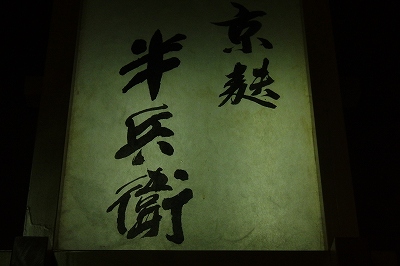 京麸
半兵衛